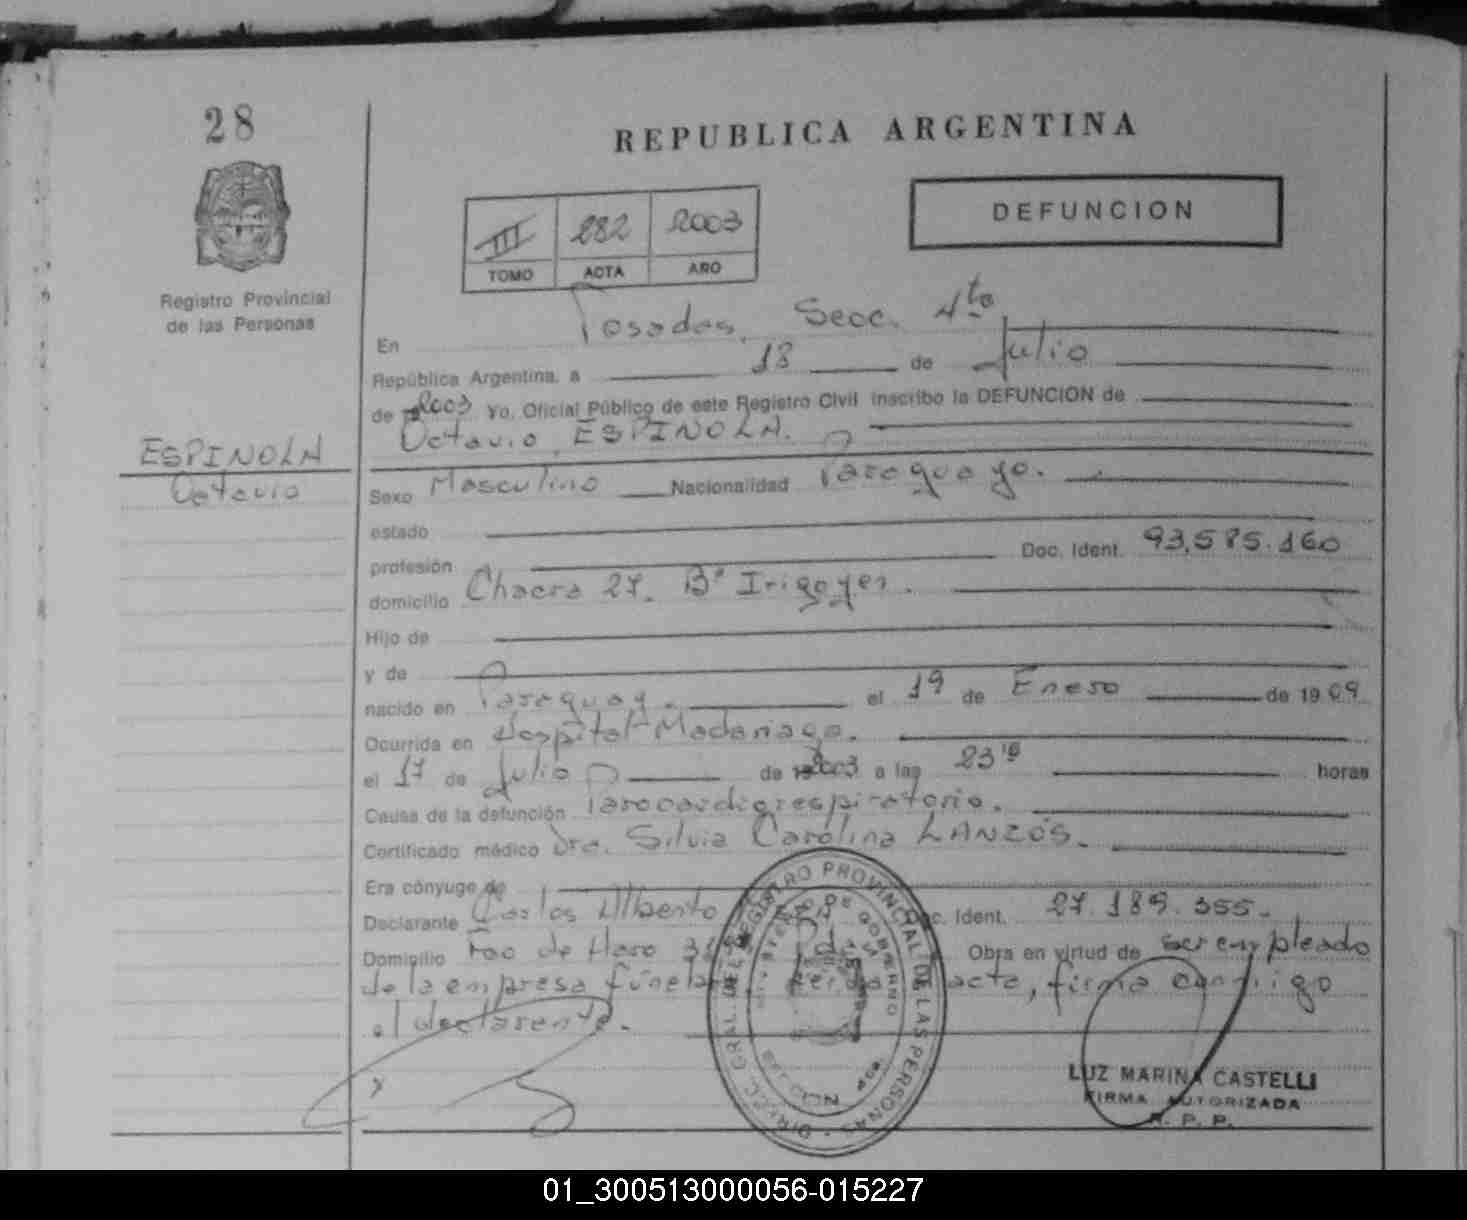 28
REPUBLICA ARGENTINA
Registro Provincial
de las Personas
III 282 2003
TOMO ACTA AÑO
DEFUNCION
En Posadas, Secc. 4ta
República Argentina, a 18 de Julio
de 2003 Yo, Oficial Público de este Registro Civil inscribo la DEFUNCION de
Octavio ESPINOLA.
ESPINOLA
Octavio
Sexo Masculino Nacionalidad Paraguayo.
estado
profesión Doc. Ident. 93,585.160
domicilio Chacra 27. Bº Irigoyen.
Hijo de
y de
nacido en Paraguay. el 19 de Enero de 1909
Ocurrida en Hospital Madariaga.
el 17 de Julio de 2003 a las 23 horas
Causa de la defunción Parocardiorespiratorio.
Certificado médico Dra. Silvia Carolina LANZOS.
Era cónyuge de
Declarante Carlos Alberto Doc. Ident. 27.189.355.
Domicilio Fco de Haro Obra en virtud de ser empleado
de la empresa acta, firma conmigo
el declarante.
DIREC. GRAL. DEL REGISTRO PROVINCIAL DE LAS PERSONAS
LUZ MARINA CASTELLI
FIRMA AUTORIZADA
R. P. P.
01_300513000056-015227